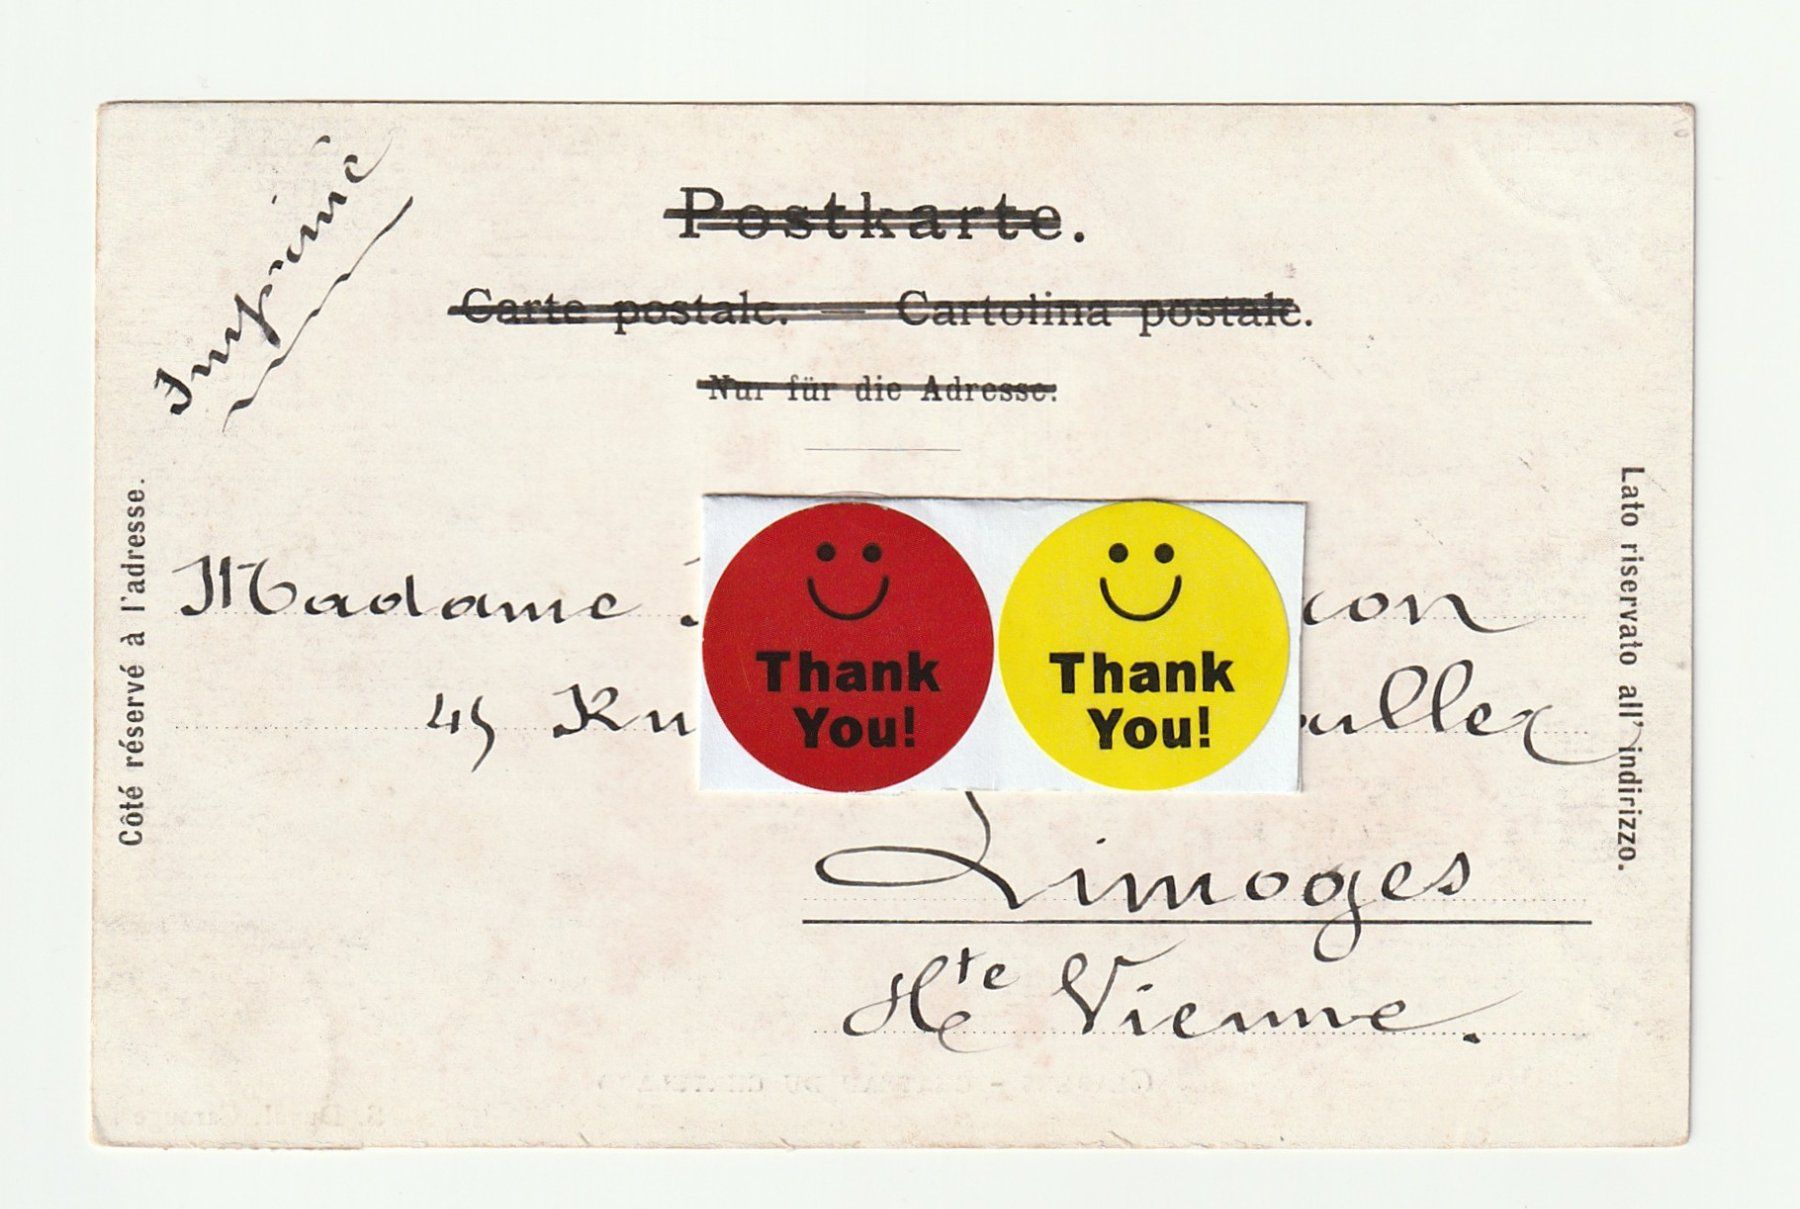 Imprimé
Postkarte.
Carte postale. — Cartolina postale.
Nur für die Adresse.
Côté réservé à l'adresse.
Lato riservato all'indirizzo.
Madame
45
Thank
You!
Thank
You!
Limoges
Hte Vienne.